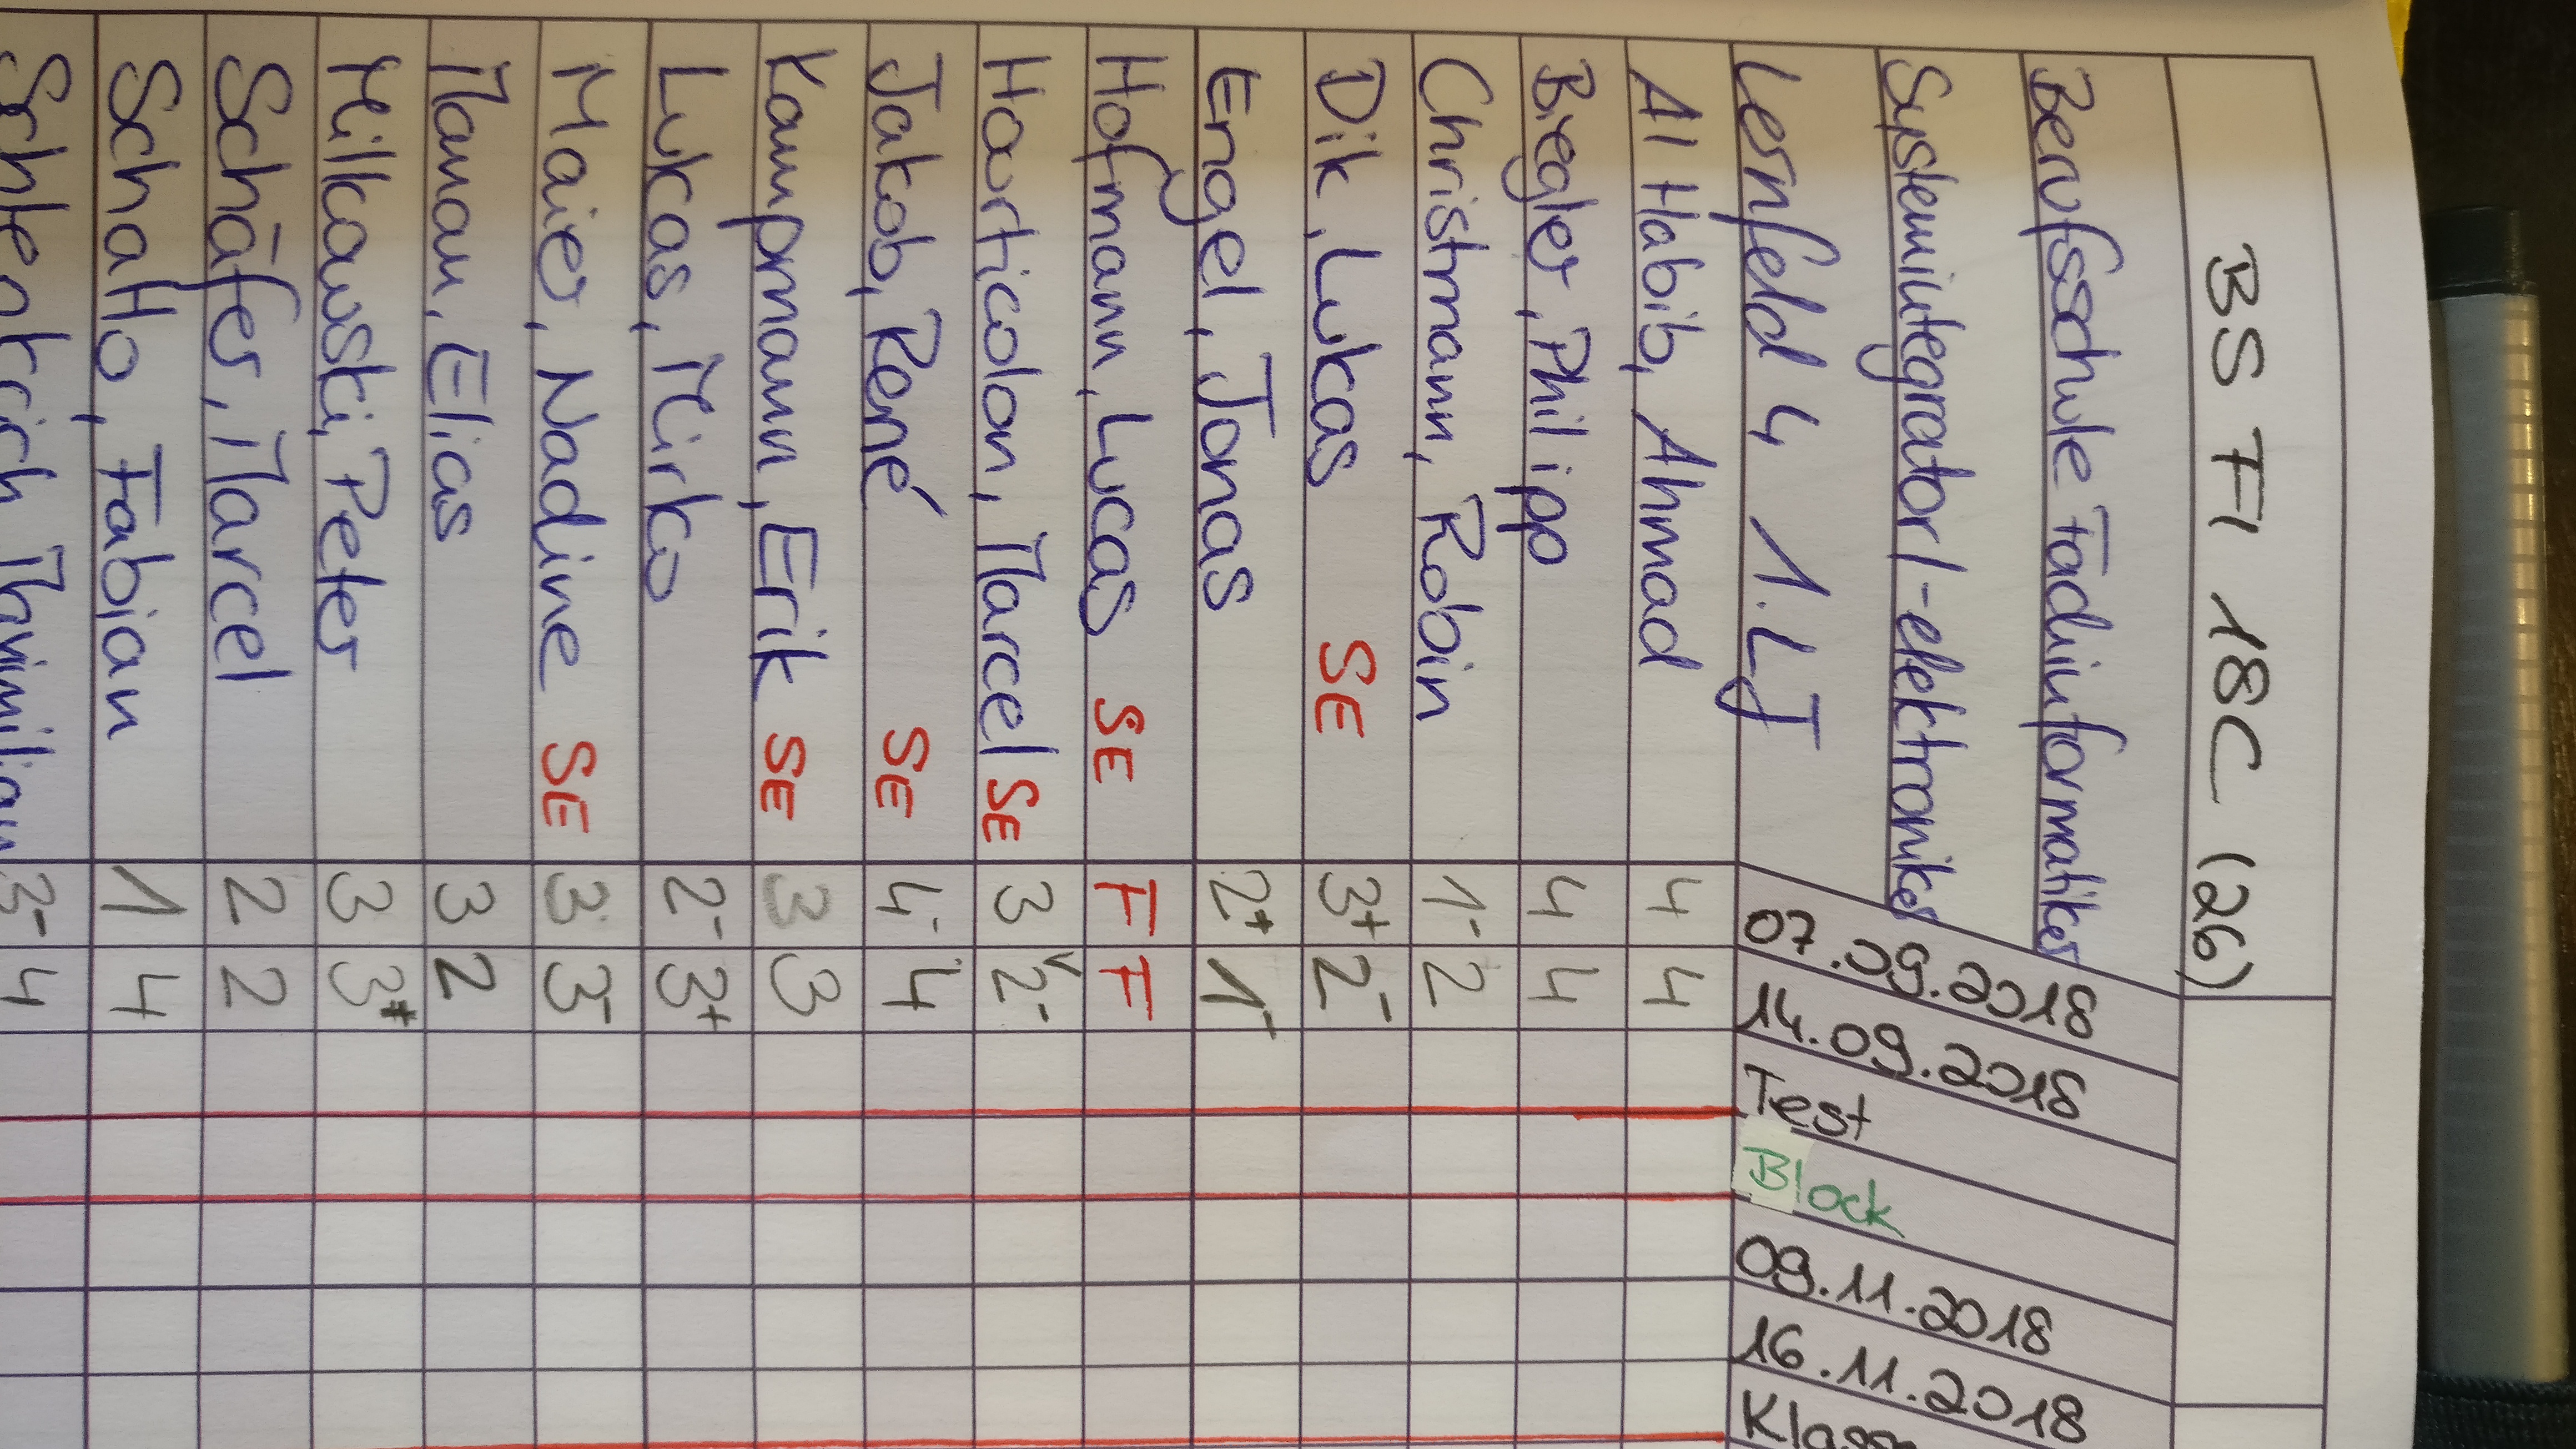 BS FI 18C (26)
Berufsschule Fachinformatiker
Systemintegrator/-elektroniker
Lernfeld 4 1.LJ
07.09.2018
14.09.2018
Test
Block
09.11.2018
16.11.2018
Al Habib, Ahmad 4 4
Biegler, Philipp 4 4
Christmann, Robin 1- 2
Dik, Lukas SE 3+ 2-
Engel, Jonas 2+ 1-
Hofmann, Lucas SE F F
Horticolon, Marcel SE 3 2-
Jakob, René SE 4- 4
Kampmann, Erik SE 3 3
Lukas, Mirko 2- 3+
Maier, Nadine SE 3 3-
Manau, Elias 3 2
Milkowski, Peter 3 3+
Schäfer, Marcel 2 2
Schallo, Fabian 1 4
3- 4